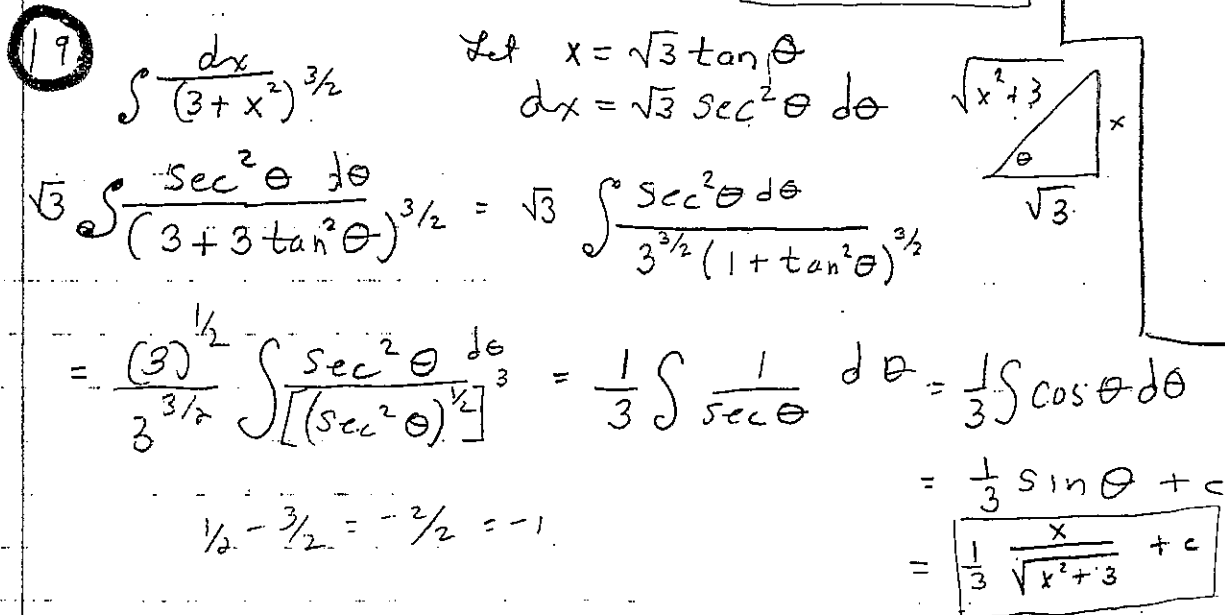 19
∫ dx / (3 + x²)^(3/2) Let x = √3 tan θ
dx = √3 sec² θ dθ
√(x² + 3) x θ √3
√3 ∫ sec² θ dθ / (3 + 3 tan² θ)^(3/2) = √3 ∫ sec² θ dθ / 3^(3/2) (1 + tan² θ)^(3/2)
= (3)^(1/2) / 3^(3/2) ∫ sec² θ dθ / [(sec² θ)^(1/2)]³ = 1/3 ∫ 1 / sec θ dθ = 1/3 ∫ cos θ dθ
= 1/3 sin θ + c
1/2 - 3/2 = -2/2 = -1
= 1/3 x / √(x² + 3) + c